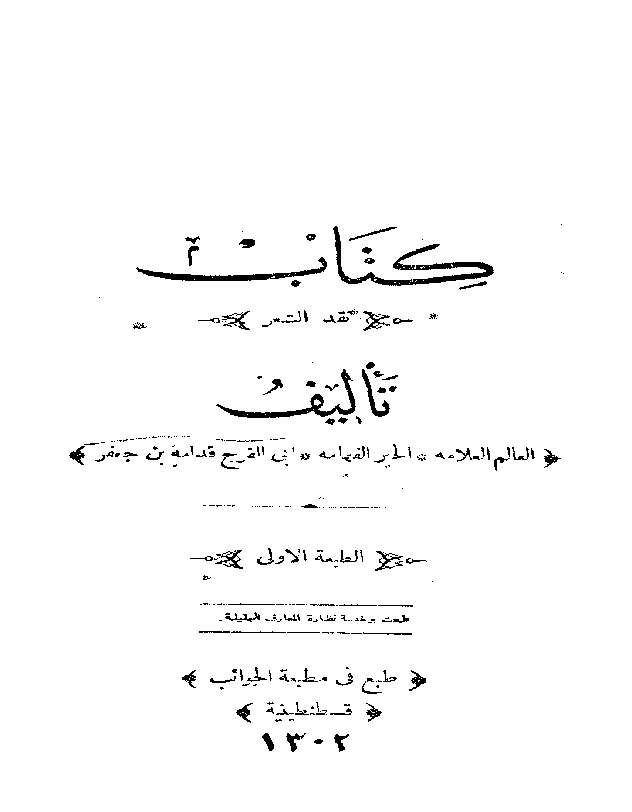 كِتَابُ
نقد الشعر
تَأْلِيفُ
العالم العلامه * الحبر الفهامه * ابى الفرج قدامة بن جعفر
الطبعة الاولى
طبعت برخصة نظارة المعارف الجليلة
طبع فى مطبعة الجوائب
قسطنطينية
١٣٠٢